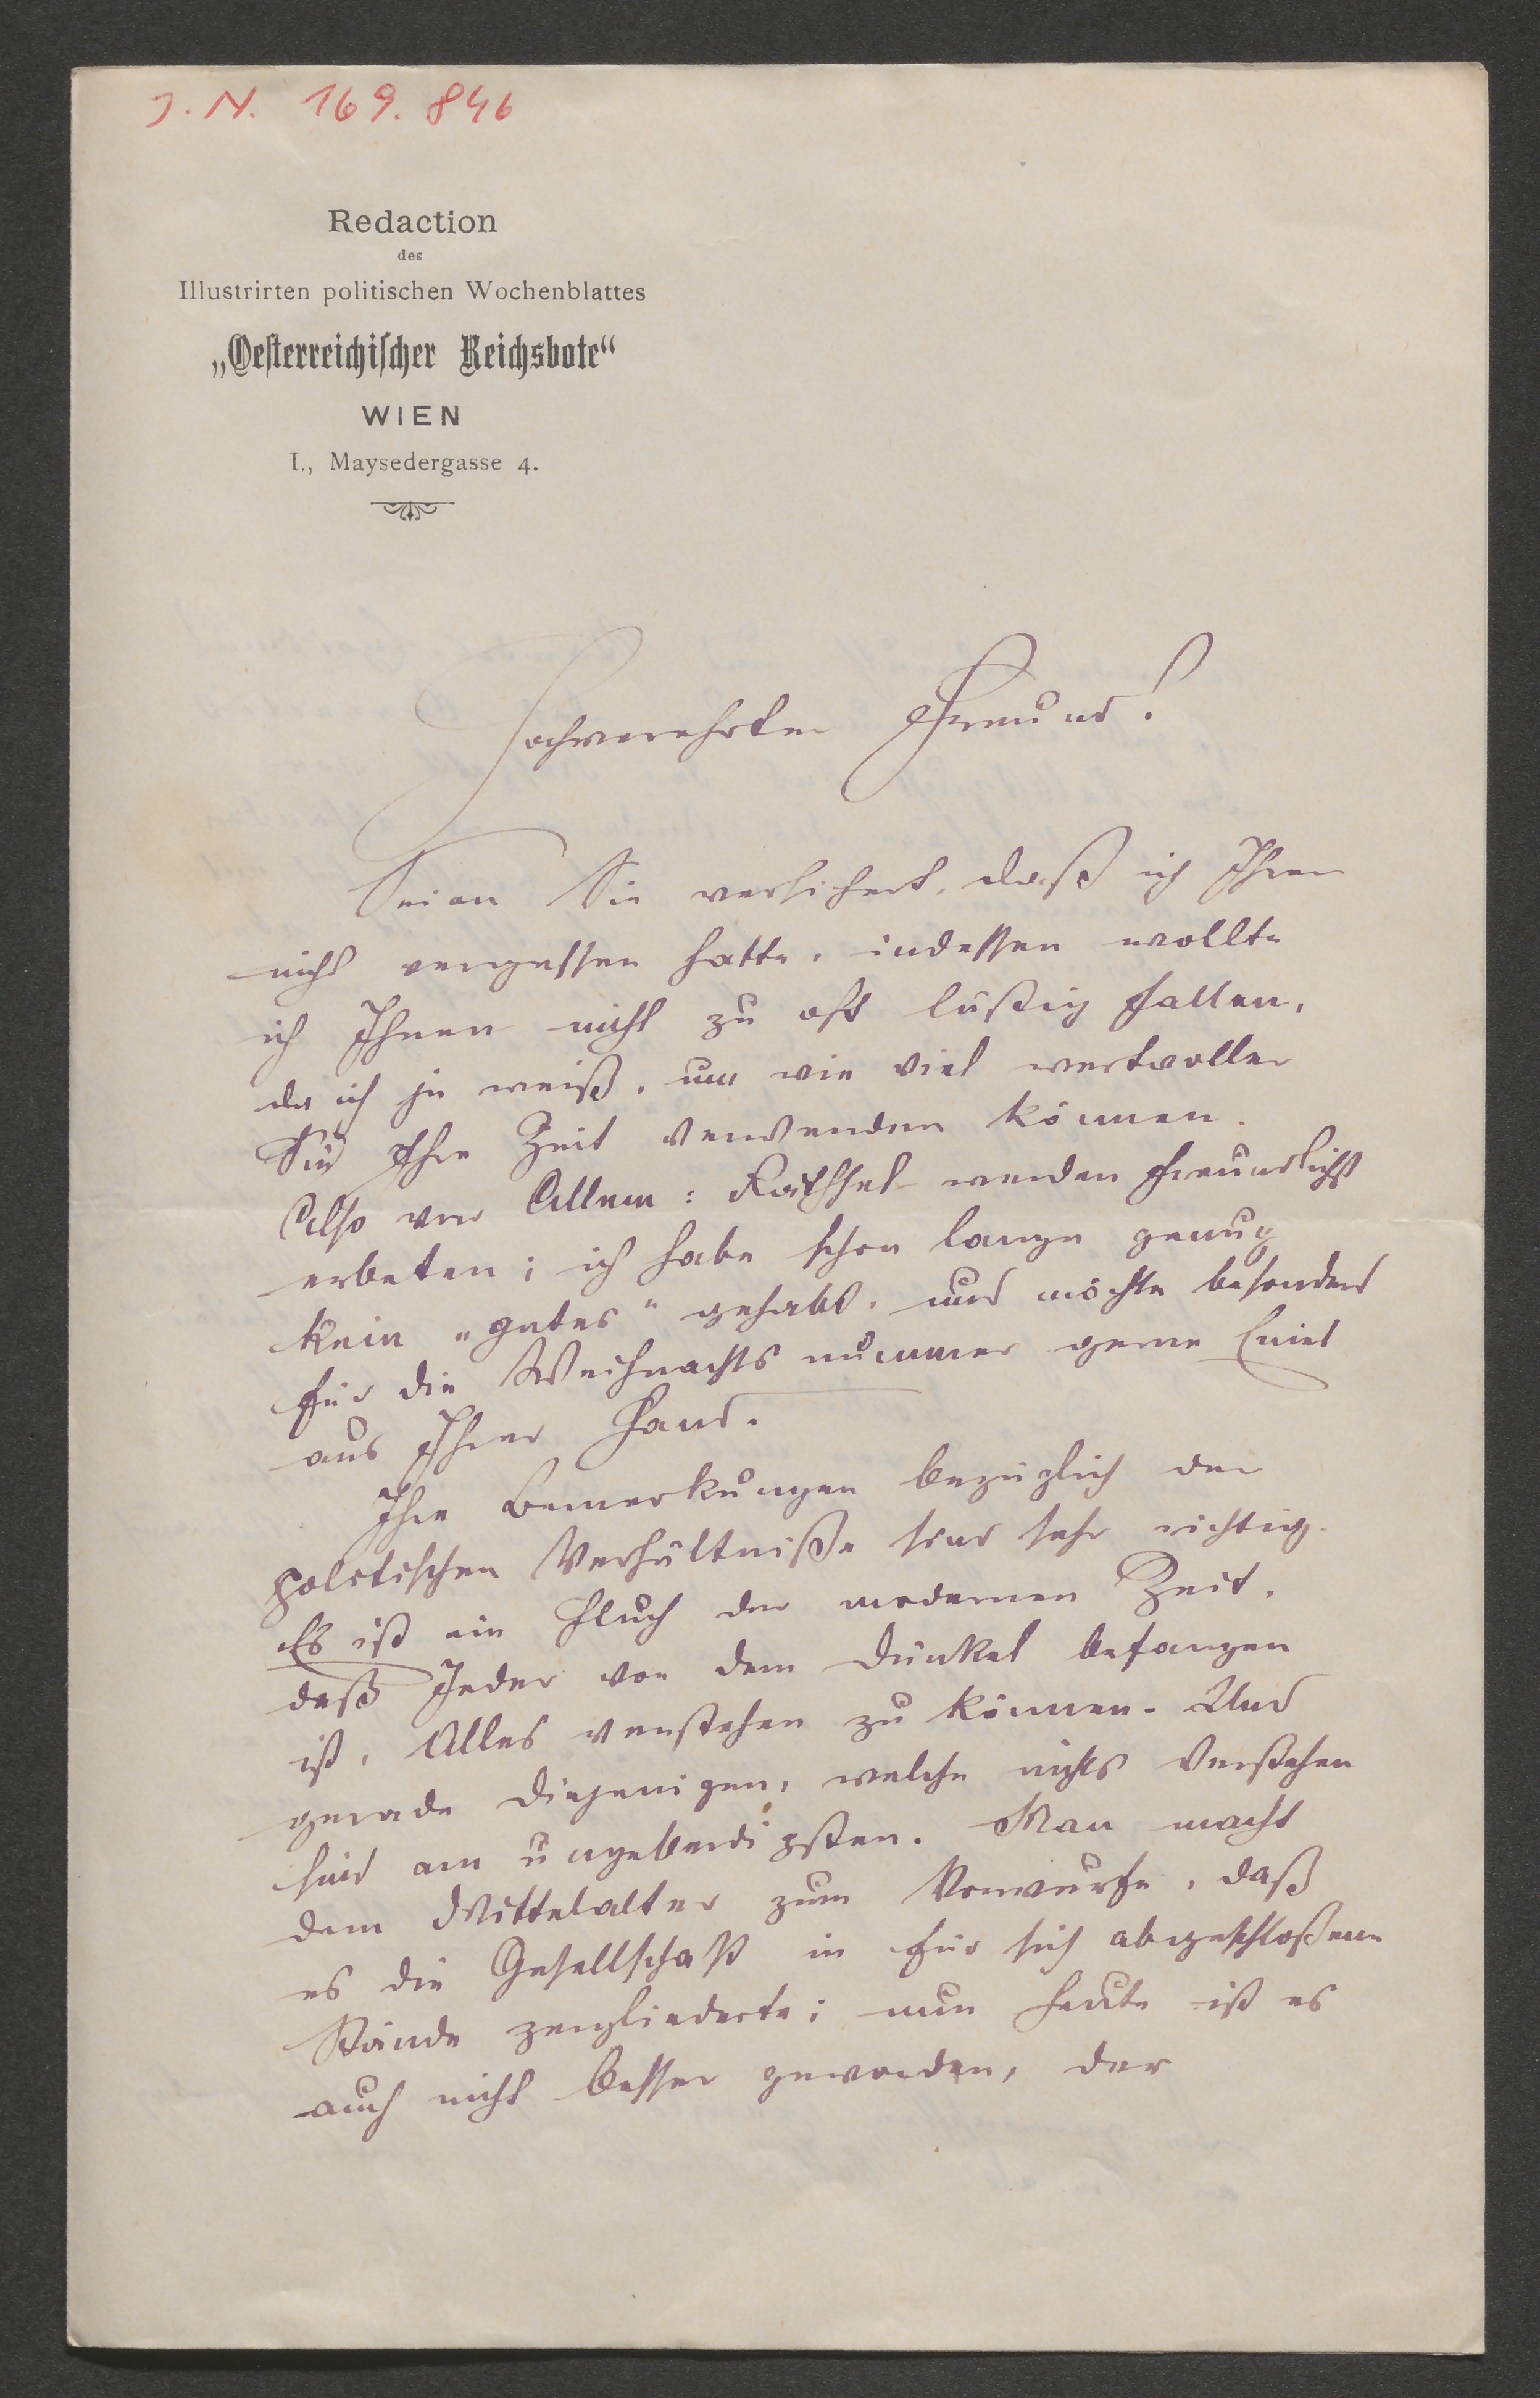 J. N. 169.846
Redaction
des
Illustrirten politischen Wochenblattes
„Oesterreichischer Reichsbote“
WIEN
I., Maysedergasse 4.
Hochverehrter Freund!
Seien Sie versichert, daß ich Ihrer
nicht vergessen hatte, indessen wollte
ich Ihnen nicht zu oft lästig fallen,
da ich ja weiß, um wie viel wertvoller
Sie Ihre Zeit verwenden können.
Also vor Allem: Räthsel werden freundlichst
erbeten; ich habe schon lange genug
kein „gutes“ gehabt, und möchte besonders
für die Weihnachtsnummer gerne Eines
aus Ihrer Hand.
Ihre Bemerkungen bezüglich der
politischen Verhältniße sind sehr richtig.
Es ist ein Fluch der modernen Zeit,
daß Jeder von dem Dünkel befangen
ist, Alles verstehen zu können. Und
gerade diejenigen, welche nichts verstehen
sind am ungeberdigsten. Man macht
dem Mittelalter zum Vorwurfe, daß
es die Gesellschaft in für sich abgeschloßene
Stände zergliederte; nun heute ist es
auch nicht besser geworden, der